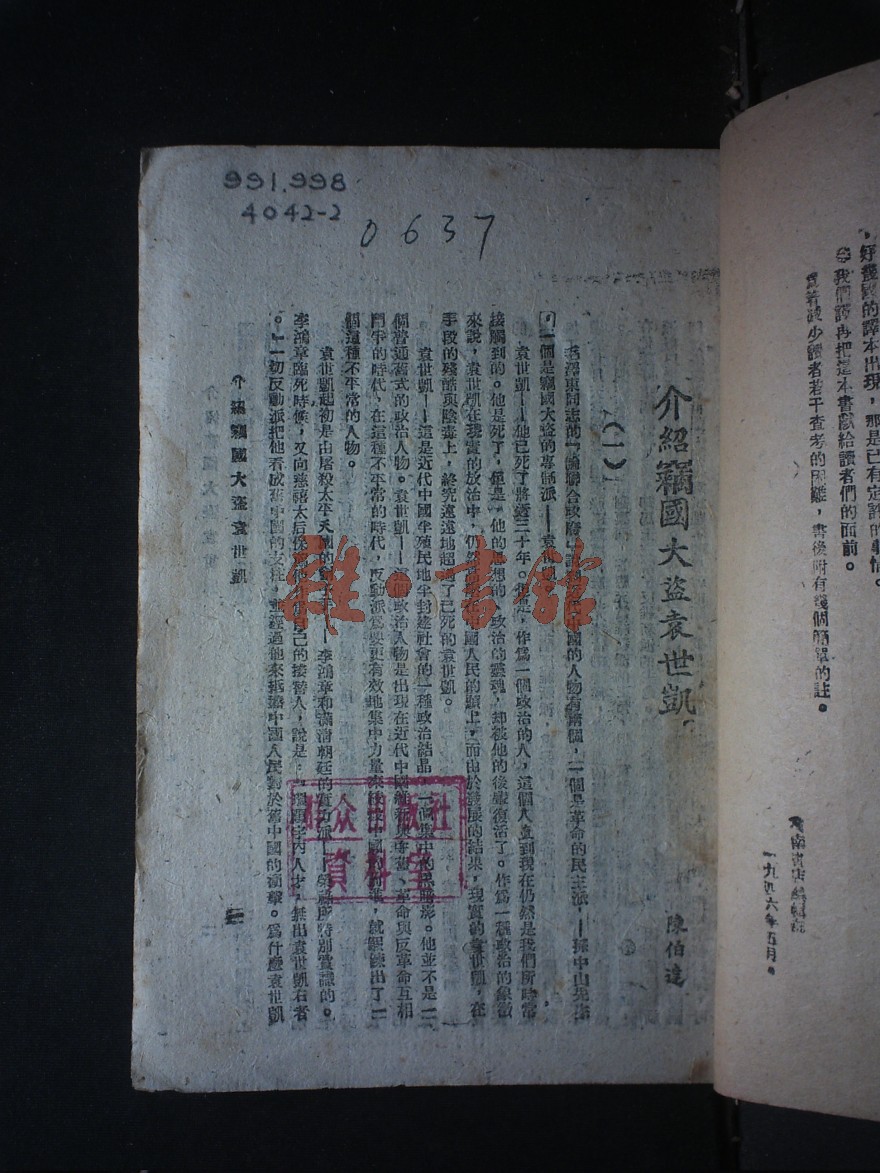 ，好幾國的譯本出現，那是已有定評的事情。
我們譯再把這本書獻給讀者們的面前。
爲着減少讀者若干查考的困難，書後附有幾個簡單的註。
一九四六年五月。
991.998
4042-2
0637
介紹竊國大盜袁世凱
陳伯達
（一）
毛澤東同志的『論聯合政府』
中國的人物有兩個，一個是革命的民主派，——孫中山先生
。一個是竊國大盜的專制派——袁世凱
袁世凱——他已死了將近三十年。但是，作爲一個政治的人，這個人直到現在仍然是我們所時常
接觸到的。他是死了，但是，他的思想的、政治的靈魂，却被他的後嚴復活了。作爲一種政治的象徵
來說，袁世凱在現實的政治中，仍然
國人民的頭上，而由於發展的結果，現實的袁世凱，在
手段的殘酷與陰毒上，終究遠遠地超過了已死的袁世凱。
袁世凱——這是近代中國半殖民地半封建社會的一種政治結晶，一個集中的
影。他並不是一
個普通舊式的政治人物。袁世凱——這個政治人物是出現在近代中國維新與守舊、革命與反革命互相
鬥爭的時代，在這種不平常的時代，反動派爲要更有效地集中力量來
就鍛鍊出了一
個這種不平常的人物。
袁世凱起初是由屠殺太平天國的劊子手——李鴻章和滿清朝廷的
所特別賞識的。
李鴻章臨死時候，又向慈禧太后保
自己的接替人，說是：『環顧宇內人才，無出袁世凱右者
。』一切反動派把他看成舊中國的支柱，並經過他來抵擋中國人民對於舊中國的衝擊。爲什麼袁世凱
介紹竊國大盜袁世凱
一
雅·書館
群众出版社
資料室